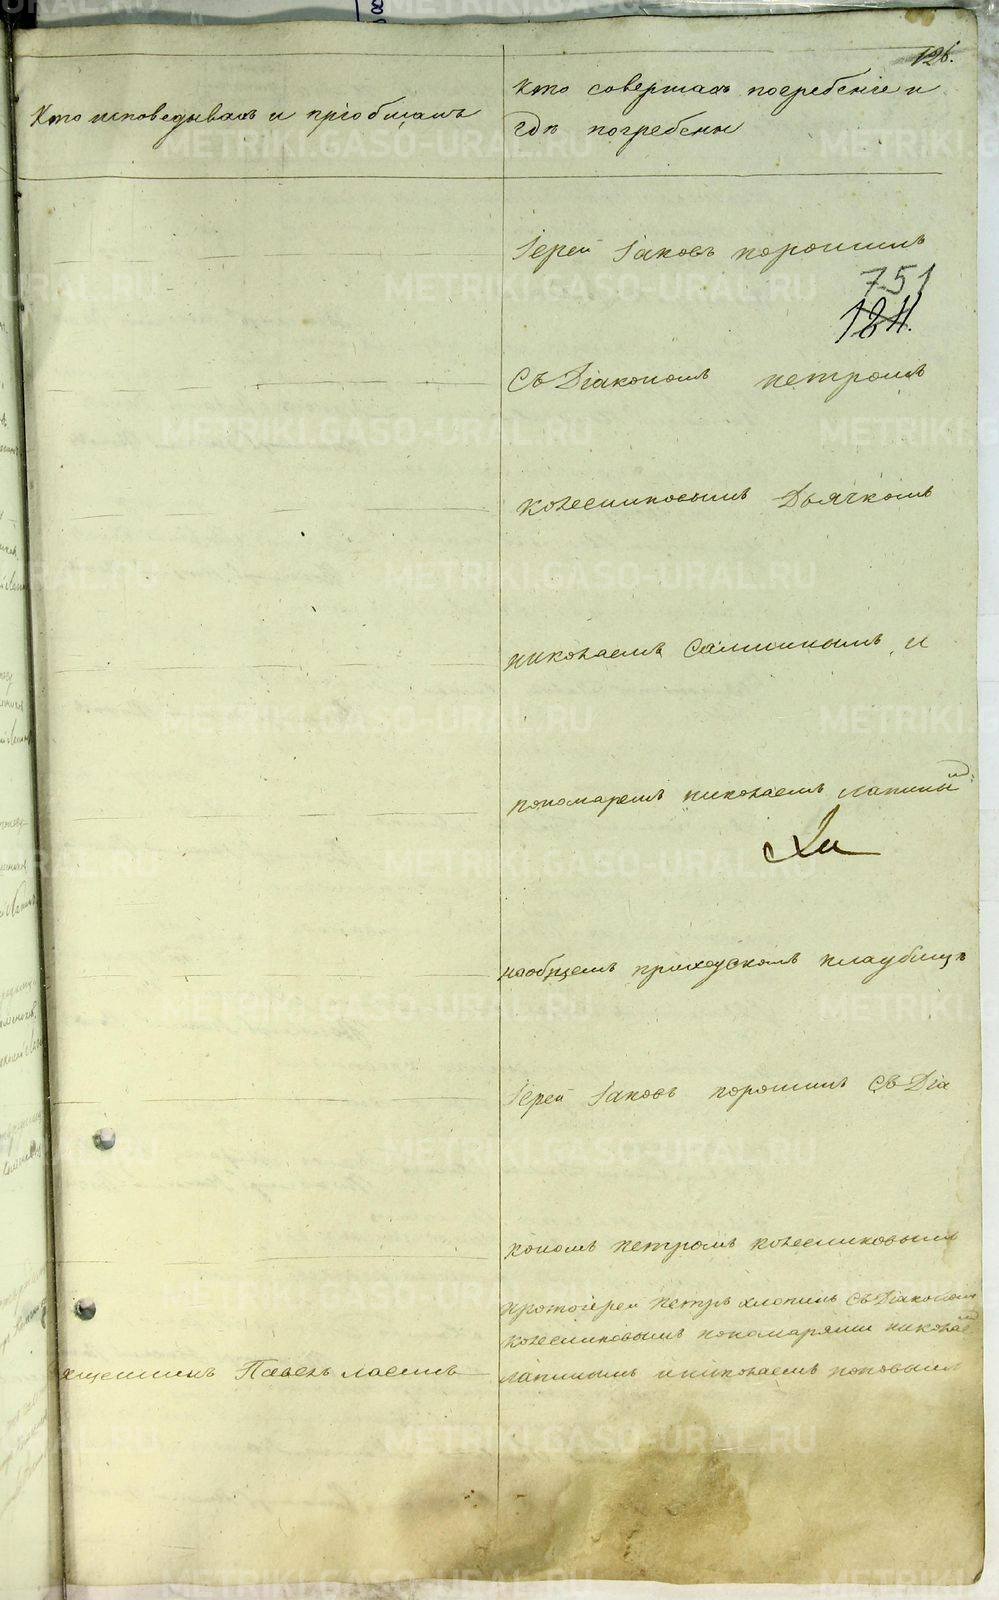 126.
Кто исповедывалъ и пріобщалъ
Кто совершалъ погребеніе и
гдѣ погребены
Іерей Іаковъ порошинъ
751
184.
Съ Діакономъ петромъ
колесниковымъ Дьячкомъ
николаемъ Саммиымъ и
пономаремъ николаемъ лапинымъ
наобщемъ приходскомъ кладбищѣ
Іерей Іаковъ порошинъ Съ Діа
кономъ петромъ колесниковымъ
протоіерей петръ хлопинъ Съ Діакономъ
колесниковымъ пономарями николаемъ
лапинымъ и николаемъ поповымъ
ященникъ Павелъ